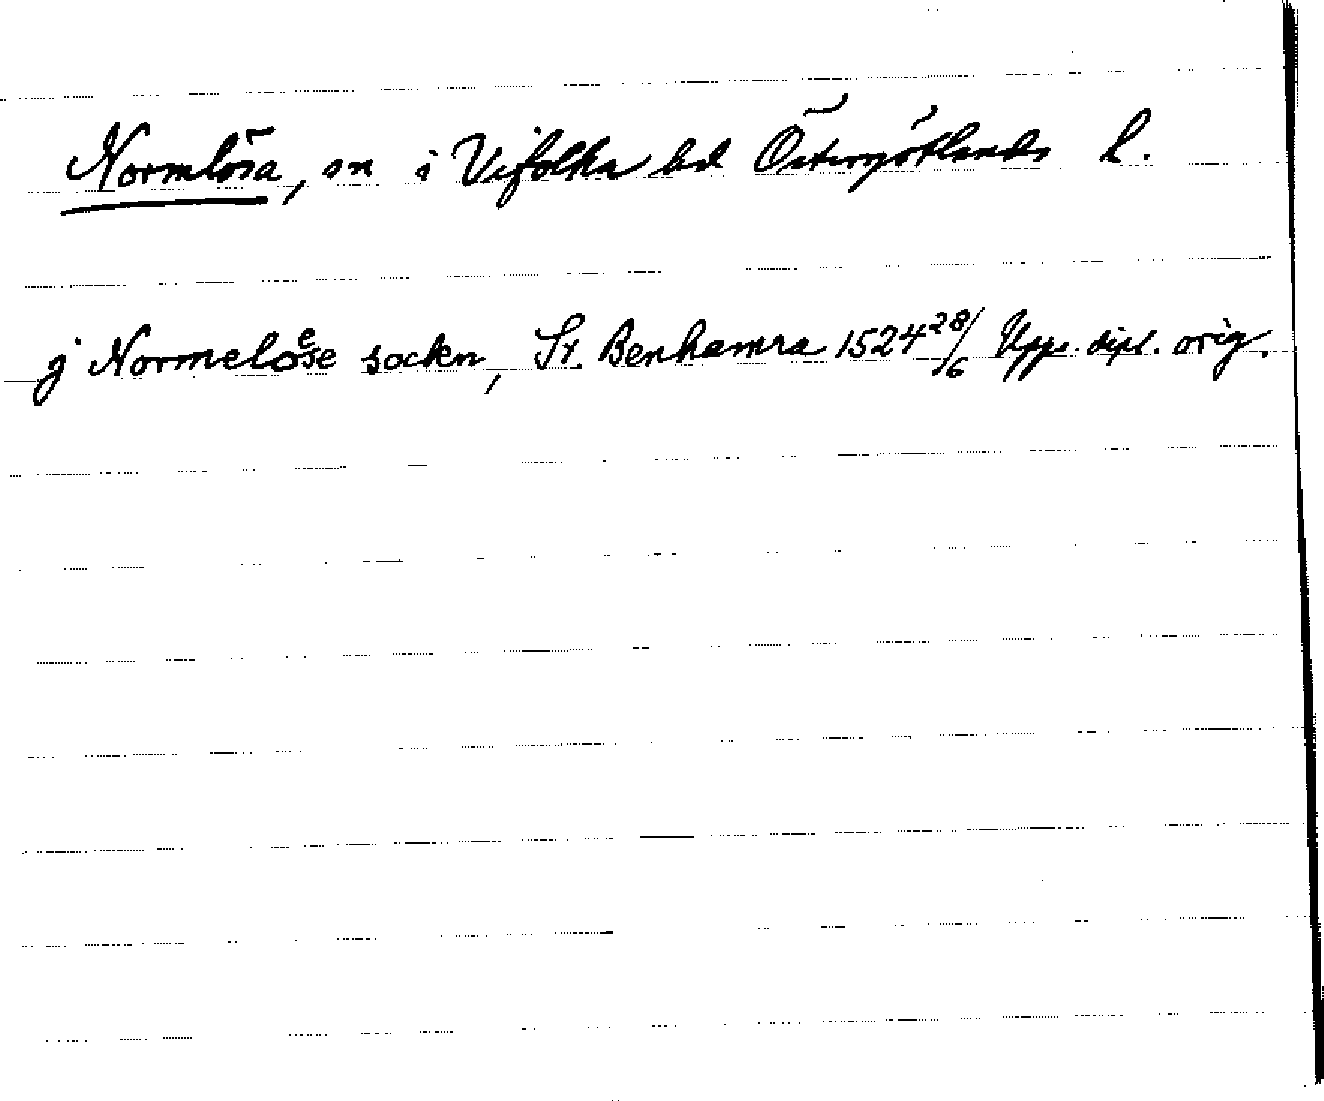 Normlösa, sn i Vifolka hd Östergötlands l.
j Normeloͤse socken, St. Benhamra 1524 28/6 Upps. dipl. orig.